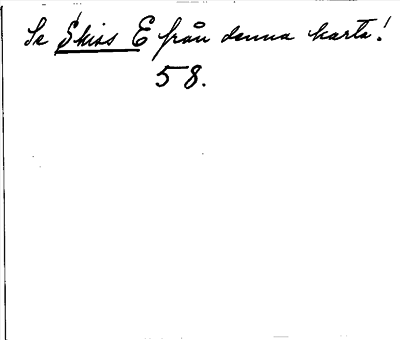 Se Skiss E från denna karta!
58.